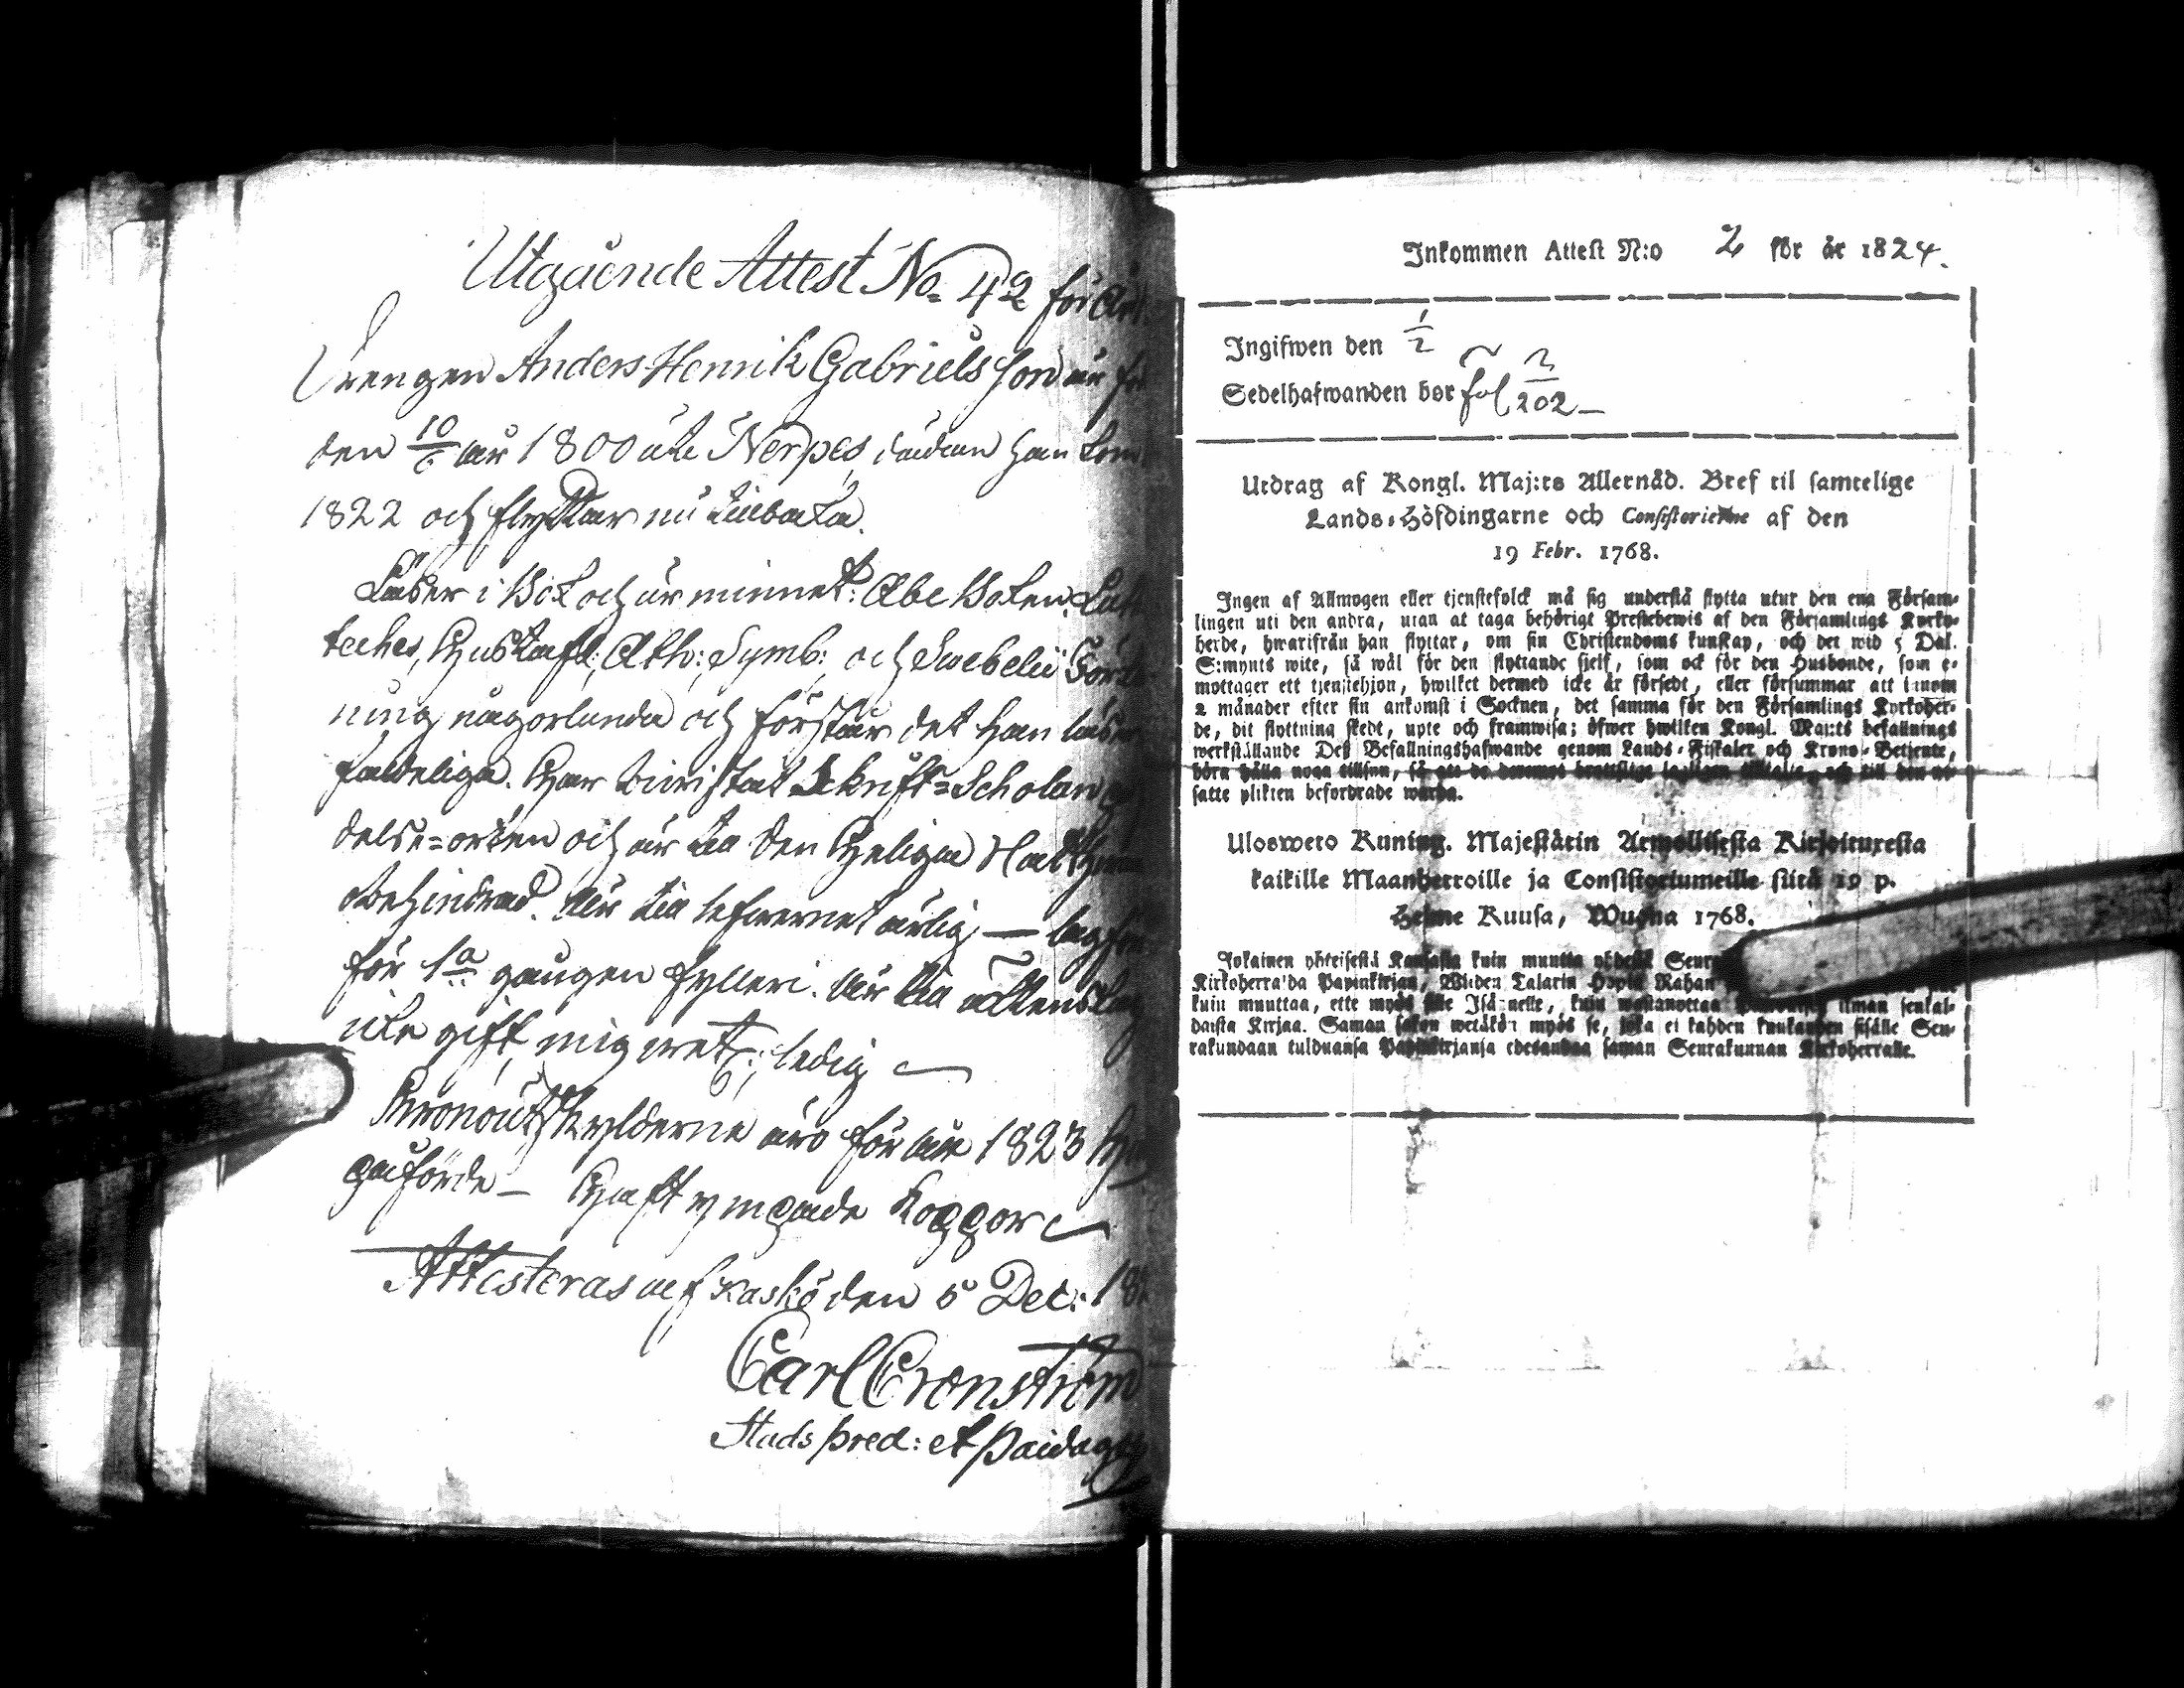 Utgående Attest No 42 för År
Drengen Anders Henrik Gabriels Son är
den 10/6 år 1800 uti Nerpes, dädan han kom
1822 och flyttar nu tillbaka.
Läser i Bok och ur minnet: Abc Boken, Lutt
teches, Hustafl: Ath: Symb: och Svebelii Förkl
ning någorlunda och förstår det han läser
Har bivistat Skrift-Scholan
delse-orten och är till Den Heliga Nattv
obehindrad. är till lefvernet ärlig — lagförd
för 1a gången fylleri. är till äktenskap
icke gift, mig vet:, ledig —
Kronoutskylderne äro för år 1823
gulförde — Haft ympade Koppor —
Attesteras af Kaskö den 5 Dec: 18
Carl Cronström
Stads pred: et Paidag
Inkommen Attest N:o 2 för år 1824.
Ingifwen den 1/2
Sedelhafwanden bor fol 2/202 —
Utdrag af Kongl. Maj:ts Allernåd. Bref til samtelige
Lands-Höfdingarne och Consistorierne af den
19 Febr. 1768.
Ingen af Allmogen eller tjenstefolck må sig understå flytta utur den ena Försam-
lingen uti den andra, utan at taga behörigt Prestebewis af den Församlings Kyrko-
herde, hwarifrån han flyttar, om sin Christendoms kunskap, och det wid 5 Dal.
S:mynts wite, så wäl för den flyttande sjelf, som ock för den Husbonde, som e-
mottager ett tjenstehjon, hwilket dermed icke är försedt, eller försummar att innom
2 månader efter sin ankomst i Socknen, det samma för den Församlings Kyrkoher-
de, dit flyttning skedt, upte och framwisa; öfwer hwilken Kongl. Maj:ts befallnings
werkställande Deß Befallningshafwande genom Lands-Fiskaler och Krono-Betjente,
böra hålla noga tillsyn, så att de deremot brottslige lagligen tilltalas och till den ut-
satte plikten befordrade warda.
Uloswero Kuning. Majestätin Armollisesta Kirjoituxesta
kaikille Maanherroille ja Consistoriumeille siitä 19 p.
Helme Kuusa, Wuonna 1768.
Jokainen yhteisestä Kansasta kuin muutta yhdestä Seur
Kirkoherra'da Papinkirjan, Wiiden Talarin Hopia Rahan
kuin muuttaa, ette myös sille Isännelle, kuin wastanottaa ilman senkal-
daista Kirjaa. Saman sakon wetäkön myös se, joka ei kahden kuukauden sisälle Seu-
rakundaan tulduansa Papinkirjansa edesandaa saman Seurakunnan Kirkoherralle.